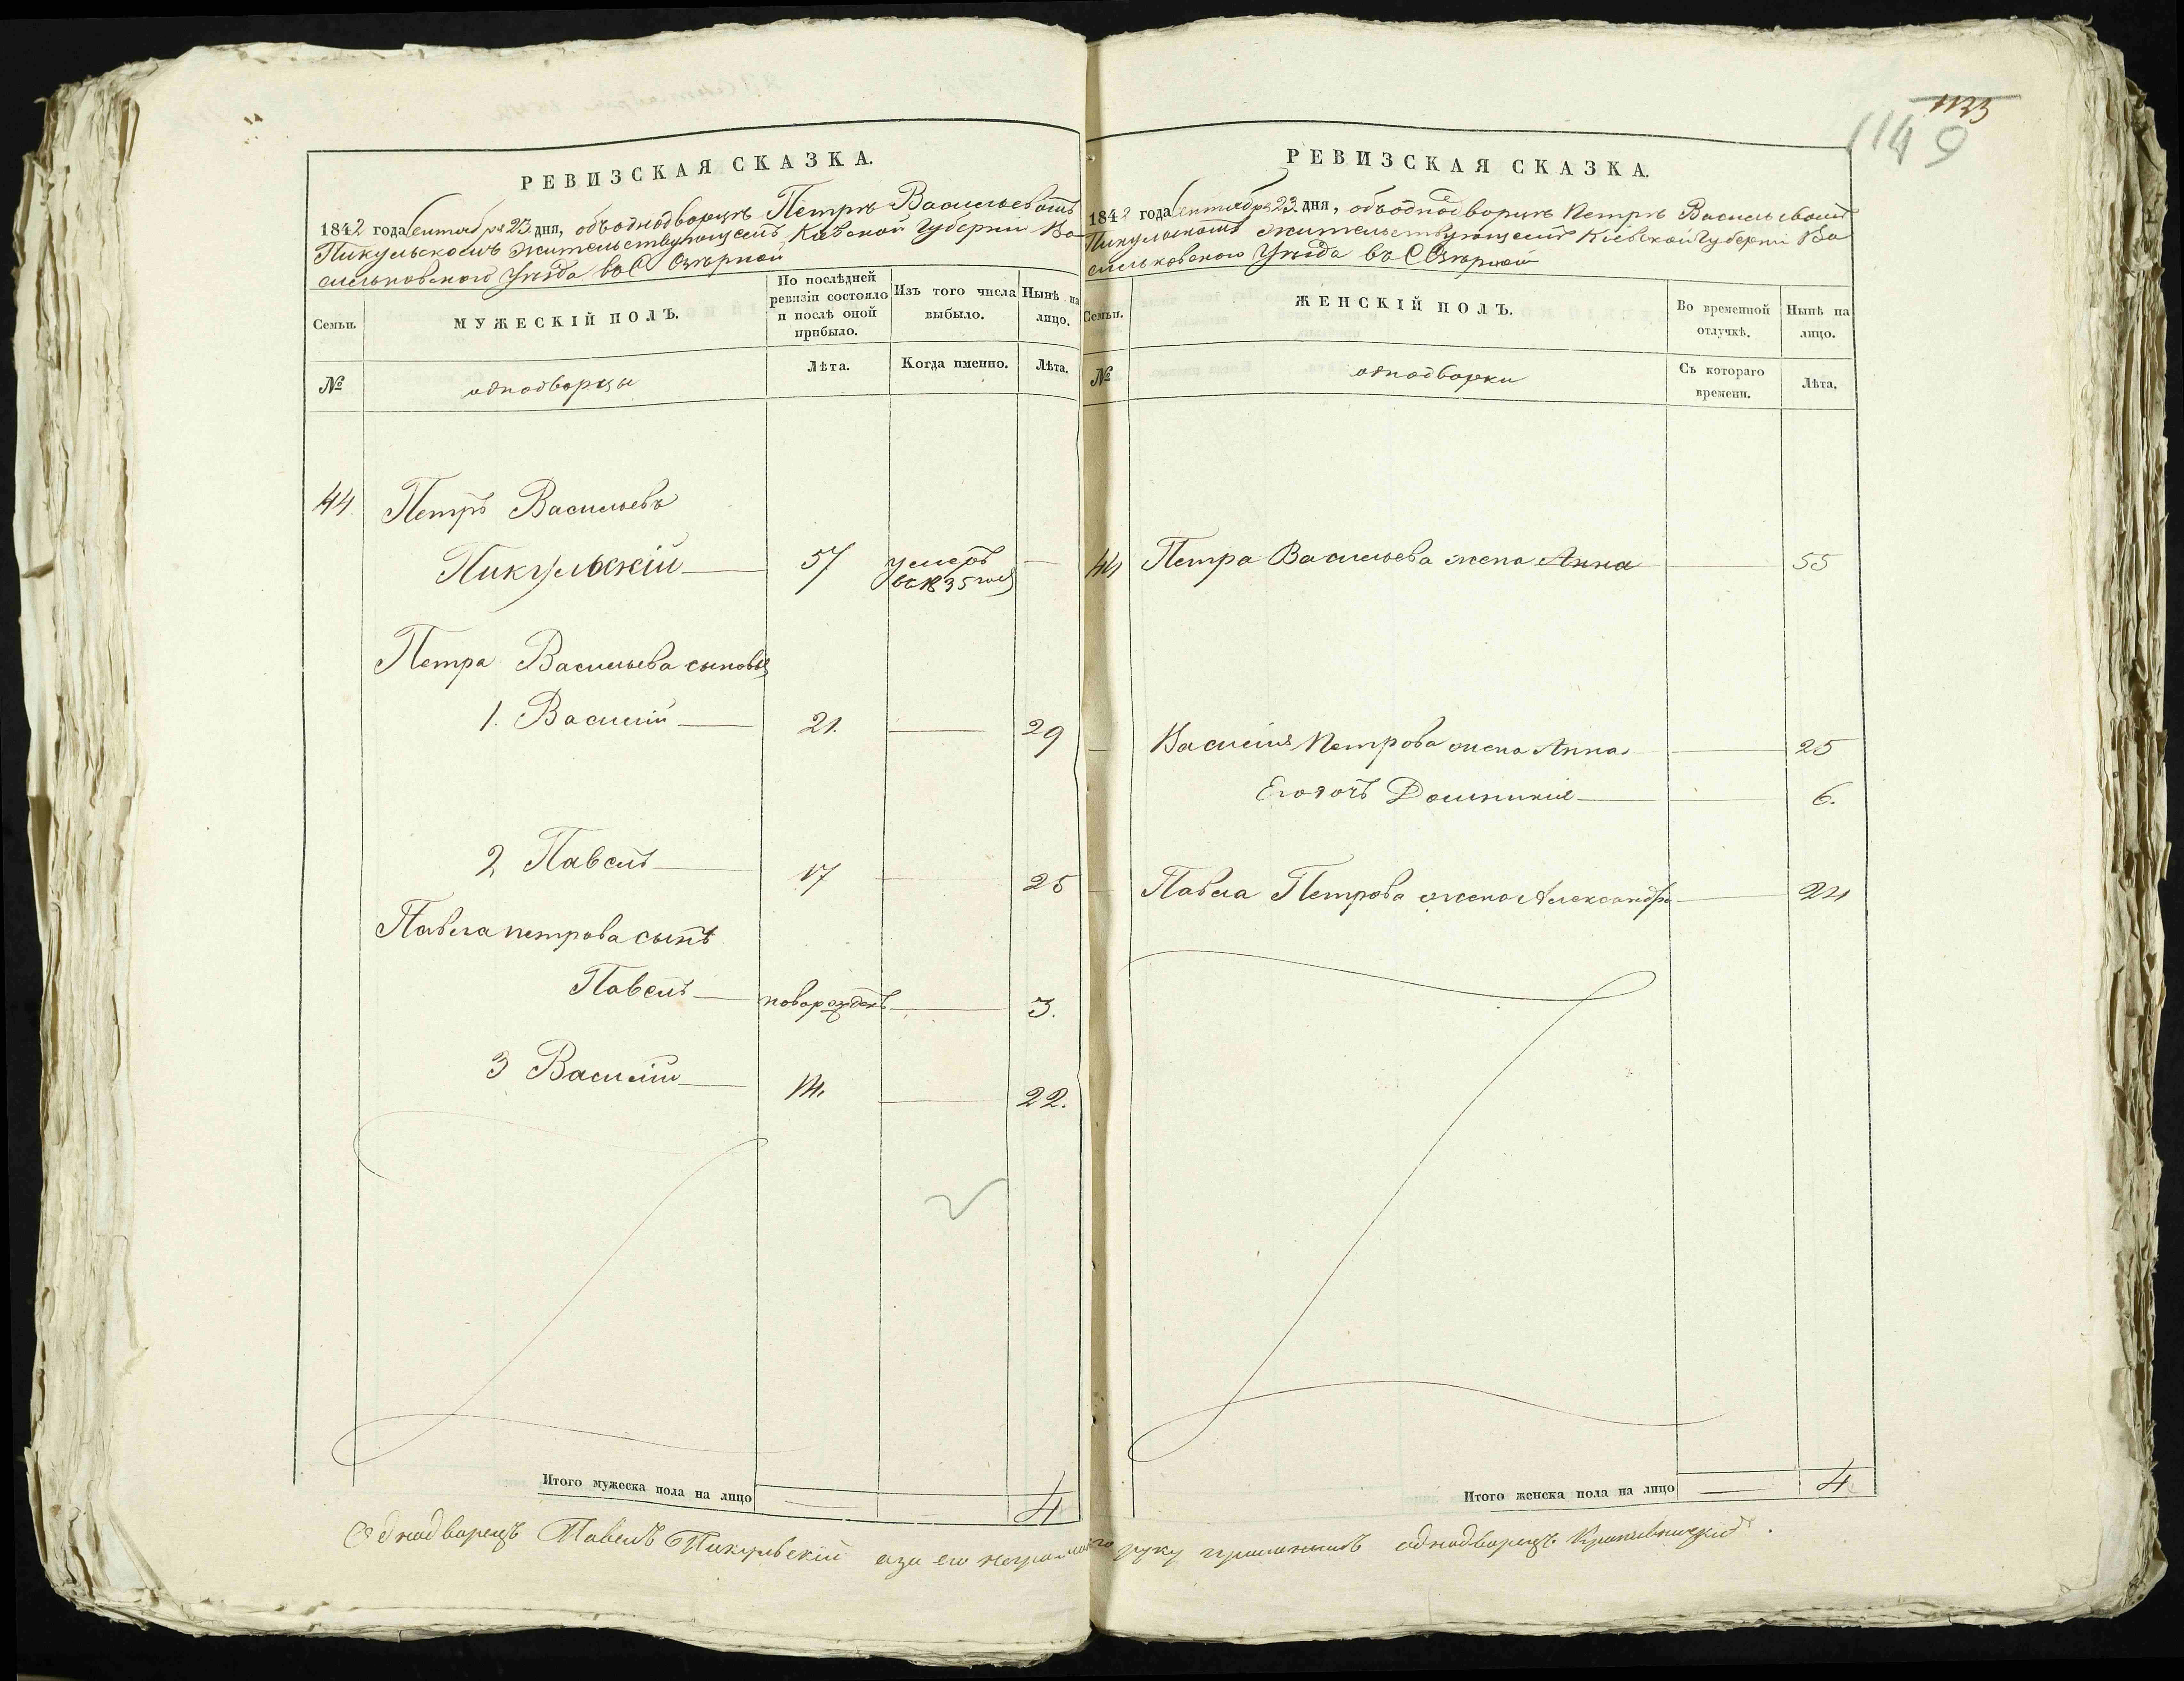 1133
1149
РЕВИЗСКАЯ СКАЗКА.
1842 года Сентября 23 дня, объ однодворцѣ Петрѣ Васильевомъ
Пикульскомъ жительствующемъ Кіевской Губерніи Ва
сильковскаго Уѣзда въ С Озѣрной
Семьи.
МУЖЕСКІЙ ПОЛЪ.
По послѣдней
ревизіи состояло
и послѣ оной
прибыло.
Изъ того числа
выбыло.
Нынѣ на
лицо.
№
однодворцы
Лѣта.
Когда именно.
Лѣта.
44. Петръ Васильевъ
Пикульскій — 57 умеръ —
въ 1835 году
Петра Васильева сыновья
1. Василій — 21. — 29
2 Павелъ — 17 — 25
Павла петрова сынъ
Павелъ — новорожденъ — 3.
3 Василій — 14. — 22.
Итого мужеска пола на лицо — — 4
РЕВИЗСКАЯ СКАЗКА.
1842 года Сентября 23 дня, объ однодворцѣ Петрѣ Васильевомъ
Пикульскомъ жительствующемъ Кіевской Губерніи Ва
сильковскаго Уѣзда въ С Озѣрной
Семьи.
ЖЕНСКІЙ ПОЛЪ.
Во временной
отлучкѣ.
Нынѣ на
лицо.
№
однодворки
Съ котораго
времени.
Лѣта.
44 Петра Васильева жена Анна — 55
— Василія Петрова жена Анна — — 25
Его дочь Домникія — — 6.
— Павла Петрова жена Александра — 24
Итого женска пола на лицо — 4
Однодворецъ Павелъ Пикульскій а за его неграмотного руку приложилъ однодворецъ Крапивницкій.